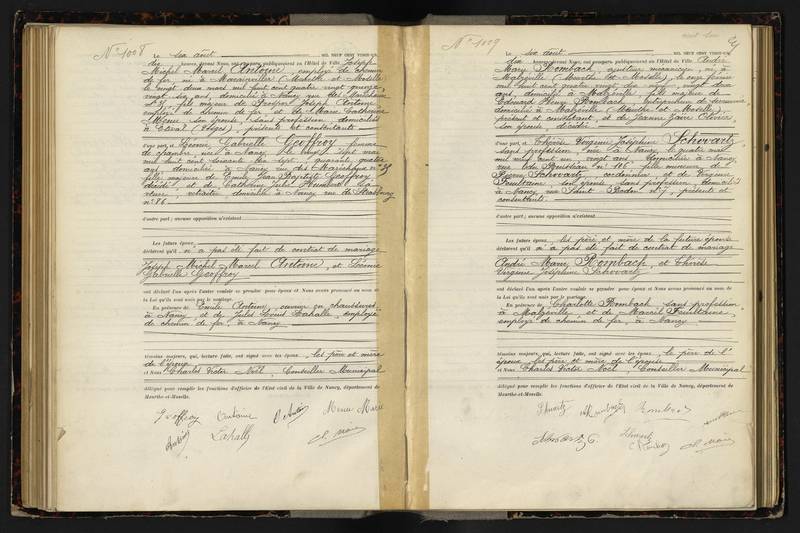 N° 1008
Le six août MIL NEUF CENT VINGT-UN,
dix heures, devant Nous, ont comparu publiquement en l'Hôtel de Ville, Joseph
Michel Marcel Antoine, employé de chemin
de fer, né à (Moselle)
le vingt deux mars mil huit cent quatre vingt quinze,
vingt six ans, domicilié à Nancy rue des Maréchaux
n° 35, fils majeur de Joseph Antoine,
employé de chemin de fer, et de Marie Catherine
son épouse, sans profession, domiciliés
à (Vosges), présents et consentants
d'une part; et Léonie Gabrielle Geoffroy, femme
de chambre, née à Nancy, le vingt sept mai
mil huit cent soixante dix sept, quarante quatre
ans, domiciliée à Nancy rue des Maréchaux n° 35
fille majeure de Emile Jean Baptiste Geoffroy
décédé, et de Catherine Julie Humbert, sa
veuve, domiciliée à Nancy rue de Strasbourg
n° 86.
d'autre part; aucune opposition n'existant
Les futurs époux
déclarent qu'il n'a pas été fait de contrat de mariage
Joseph Michel Marcel Antoine, et Léonie
Gabrielle Geoffroy
ont déclaré l'un après l'autre vouloir se prendre pour époux et Nous avons prononcé au nom de
la Loi qu'ils sont unis par le mariage.
En présence de Emile Antoine, ouvrier en chaussures,
à Nancy, et de Jules Louis Lahalle, employé
de chemin de fer, à Nancy
témoins majeurs, qui, lecture faite, ont signé avec les époux, les père et mère
de l'époux
et Nous Charles Victor Noël, Conseiller Municipal
délégué pour remplir les fonctions d'officier de l'Etat civil de la Ville de Nancy, département de
Meurthe-et-Moselle.
Geoffroy Antoine Marie
Antoine Lahalle Ch. Noël
N° 1009
Le six août MIL NEUF CENT VINGT-UN,
dix heures, devant Nous, ont comparu publiquement en l'Hôtel de Ville, André
Marie Rombach, ajusteur mécanicien, né à
Malzéville (Meurthe-et-Moselle), le onze février
mil huit cent quatre vingt dix neuf, vingt deux
ans, domicilié à Malzéville, fils majeur de
Edouard Henri Rombach, entrepreneur de serrurerie,
domicilié à Malzéville (Meurthe-et-Moselle),
présent et consentant, et de Jeanne
son épouse, décédée
d'une part; et Thérèse Virginie Joséphine Schwartz
sans profession, née à Nancy, le quatre mai
mil neuf cent un, vingt ans, domiciliée à Nancy
fille mineure de
Pierre Schwartz, cordonnier, et de Virginie
son épouse, sans profession, domiciliés
à Nancy, rue Saint Bodon n° 7, présents et
consentants.
d'autre part; aucune opposition n'existant
Les futurs époux, les père et mère de la future épouse
déclarent qu'il n'a pas été fait de contrat de mariage
André Marie Rombach, et Thérèse
Virginie Joséphine Schwartz
ont déclaré l'un après l'autre vouloir se prendre pour époux et Nous avons prononcé au nom de
la Loi qu'ils sont unis par le mariage.
En présence de Charlotte Rombach, sans profession
à Malzéville, et de Marcel
employé de chemin de fer, à Nancy
témoins majeurs, qui, lecture faite, ont signé avec les époux, le père de l'
époux, les père et mère de l'épouse
et Nous Charles Victor Noël, Conseiller Municipal
délégué pour remplir les fonctions d'officier de l'Etat civil de la Ville de Nancy, département de
Meurthe-et-Moselle.
Schwartz Rombach Rombach
Schwartz Schwartz
C Rombach Ch. Noël